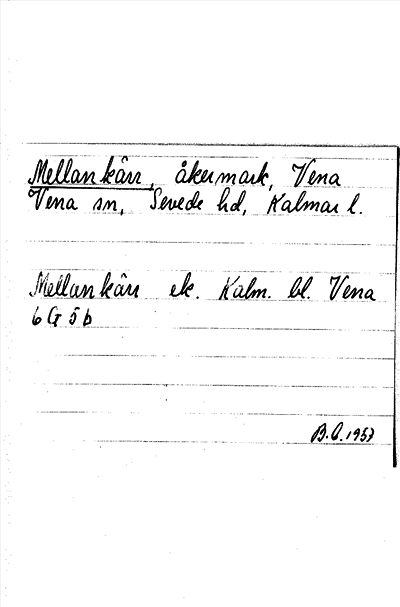 Mellankärr, åkermark, Vena
Vena sn, Sevede hd, Kalmar l.
Mellankärr ek. Kalm. bl. Vena
6 G 5 b
B.O. 1957